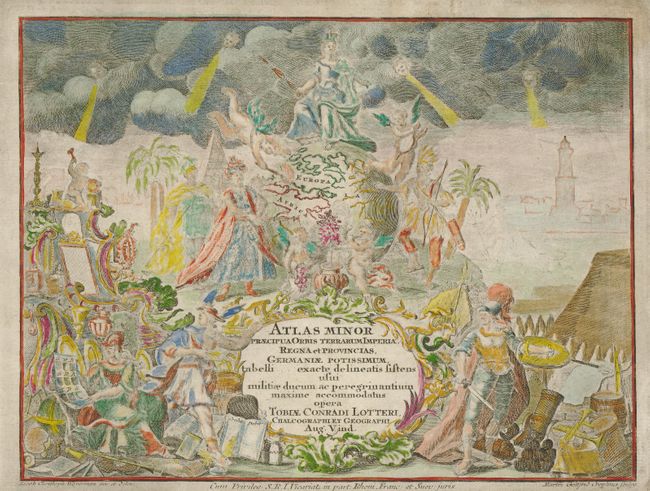 EUROPA
AFRIC
ATLAS MINOR
PRÆCIPUA ORBIS TERRARUM IMPERIA,
REGNA et PROVINCIAS,
GERMANIÆ POTISSIMUM,
tabellis exacte delineatis sistens
usui
militiæ ducum ac peregrinantium
maxime accommodatus
opera
TOBIÆ CONRADI LOTTERI,
CHALCOGRAPHI ET GEOGRAPHI
Aug. Vind.
Cum Privileg. S. R. I. Vicariat. in part. Rheni, Franc. et Suev. juris
Martin Gottfrid